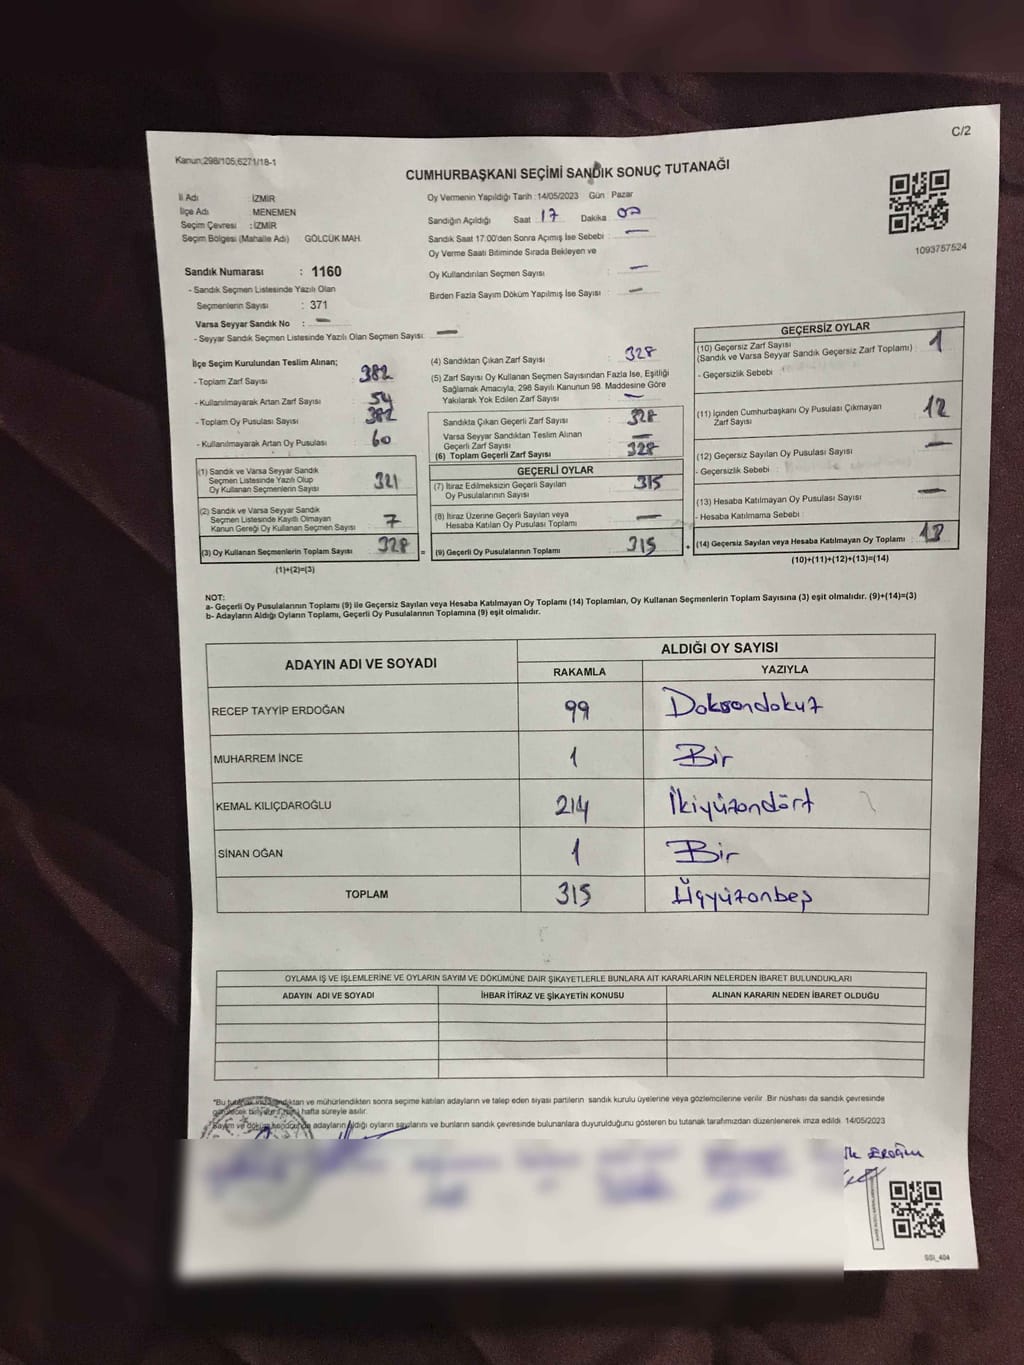 C/2
Kanun;298/105;6271/18-1
CUMHURBAŞKANI SEÇİMİ SANDIK SONUÇ TUTANAĞI
İl Adı : İZMİR
İlçe Adı : MENEMEN
Seçim Çevresi : İZMİR
Seçim Bölgesi (Mahalle Adı) GÖLCÜK MAH.
Sandık Numarası : 1160
- Sandık Seçmen Listesinde Yazılı Olan
Seçmenlerin Sayısı : 371
Varsa Seyyar Sandık No : —
- Seyyar Sandık Seçmen Listesinde Yazılı Olan Seçmen Sayısı: —
Oy Vermenin Yapıldığı Tarih :14/05/2023 Gün : Pazar
Sandığın Açıldığı Saat 17 Dakika 07
Sandık Saat 17:00'den Sonra Açımış İse Sebebi : —
Oy Verme Saati Bitiminde Sırada Bekleyen ve
Oy Kullandırılan Seçmen Sayısı : —
Birden Fazla Sayım Döküm Yapılmış İse Sayısı : —
1093757524
İlçe Seçim Kurulundan Teslim Alınan;
- Toplam Zarf Sayısı : 382
- Kullanılmayarak Artan Zarf Sayısı : 54
- Toplam Oy Pusulası Sayısı : 382
- Kullanılmayarak Artan Oy Pusulası : 60
(1) Sandık ve Varsa Seyyar Sandık
Seçmen Listesinde Yazılı Olup
Oy Kullanan Seçmenlerin Sayısı : 321
(2) Sandık ve Varsa Seyyar Sandık
Seçmen Listesinde Kayıtlı Olmayan
Kanun Gereği Oy Kullanan Seçmen Sayısı : 7
(3) Oy Kullanan Seçmenlerin Toplam Sayısı : 328
(1)+(2)=(3)
(4) Sandıktan Çıkan Zarf Sayısı : 328
(5) Zarf Sayısı Oy Kullanan Seçmen Sayısından Fazla İse, Eşitliği
Sağlamak Amacıyla, 298 Sayılı Kanunun 98. Maddesine Göre
Yakılarak Yok Edilen Zarf Sayısı : —
Sandıkta Çıkan Geçerli Zarf Sayısı : 328
Varsa Seyyar Sandıktan Teslim Alınan
Geçerli Zarf Sayısı : —
(6) Toplam Geçerli Zarf Sayısı : 328
GEÇERLİ OYLAR
(7) İtiraz Edilmeksizin Geçerli Sayılan
Oy Pusulalarının Sayısı : 315
(8) İtiraz Üzerine Geçerli Sayılan veya
Hesaba Katılan Oy Pusulası Toplamı : —
(9) Geçerli Oy Pusulalarının Toplamı : 315
GEÇERSİZ OYLAR
(10) Geçersiz Zarf Sayısı
(Sandık ve Varsa Seyyar Sandık Geçersiz Zarf Toplamı) : 1
- Geçersizlik Sebebi :
(11) İçinden Cumhurbaşkanı Oy Pusulası Çıkmayan
Zarf Sayısı : 12
(12) Geçersiz Sayılan Oy Pusulası Sayısı : —
- Geçersizlik Sebebi :
(13) Hesaba Katılmayan Oy Pusulası Sayısı : —
- Hesaba Katılmama Sebebi :
(14) Geçersiz Sayılan veya Hesaba Katılmayan Oy Toplamı : 13
(10)+(11)+(12)+(13)=(14)
NOT:
a- Geçerli Oy Pusulalarının Toplamı (9) ile Geçersiz Sayılan veya Hesaba Katılmayan Oy Toplamı (14) Toplamları, Oy Kullanan Seçmenlerin Toplam Sayısına (3) eşit olmalıdır. (9)+(14)=(3)
b- Adayların Aldığı Oyların Toplamı, Geçerli Oy Pusulalarının Toplamına (9) eşit olmalıdır.
ADAYIN ADI VE SOYADI ALDIĞI OY SAYISI
RAKAMLA YAZIYLA
RECEP TAYYİP ERDOĞAN 99 Doksandokuz
MUHARREM İNCE 1 Bir
KEMAL KILIÇDAROĞLU 214 İkiyüzondört
SİNAN OĞAN 1 Bir
TOPLAM 315 Üçyüzonbeş
OYLAMA İŞ VE İŞLEMLERİNE VE OYLARIN SAYIM VE DÖKÜMÜNE DAİR ŞİKAYETLERLE BUNLARA AİT KARARLARIN NELERDEN İBARET BULUNDUKLARI
ADAYIN ADI VE SOYADI İHBAR İTİRAZ VE ŞİKAYETİN KONUSU ALINAN KARARIN NEDEN İBARET OLDUĞU
ve mühürlendikten sonra seçime katılan adayların ve talep eden siyasi partilerin sandık kurulu üyelerine veya gözlemcilerine verilir. Bir nüshası da sandık çevresinde
hafta süreyle asılır.
adayların aldığı oyların sayılarını ve bunların sandık çevresinde bulunanlara duyurulduğunu gösteren bu tutanak tarafımızdan düzenlenerek imza edildi. 14/05/2023
SSİ_404